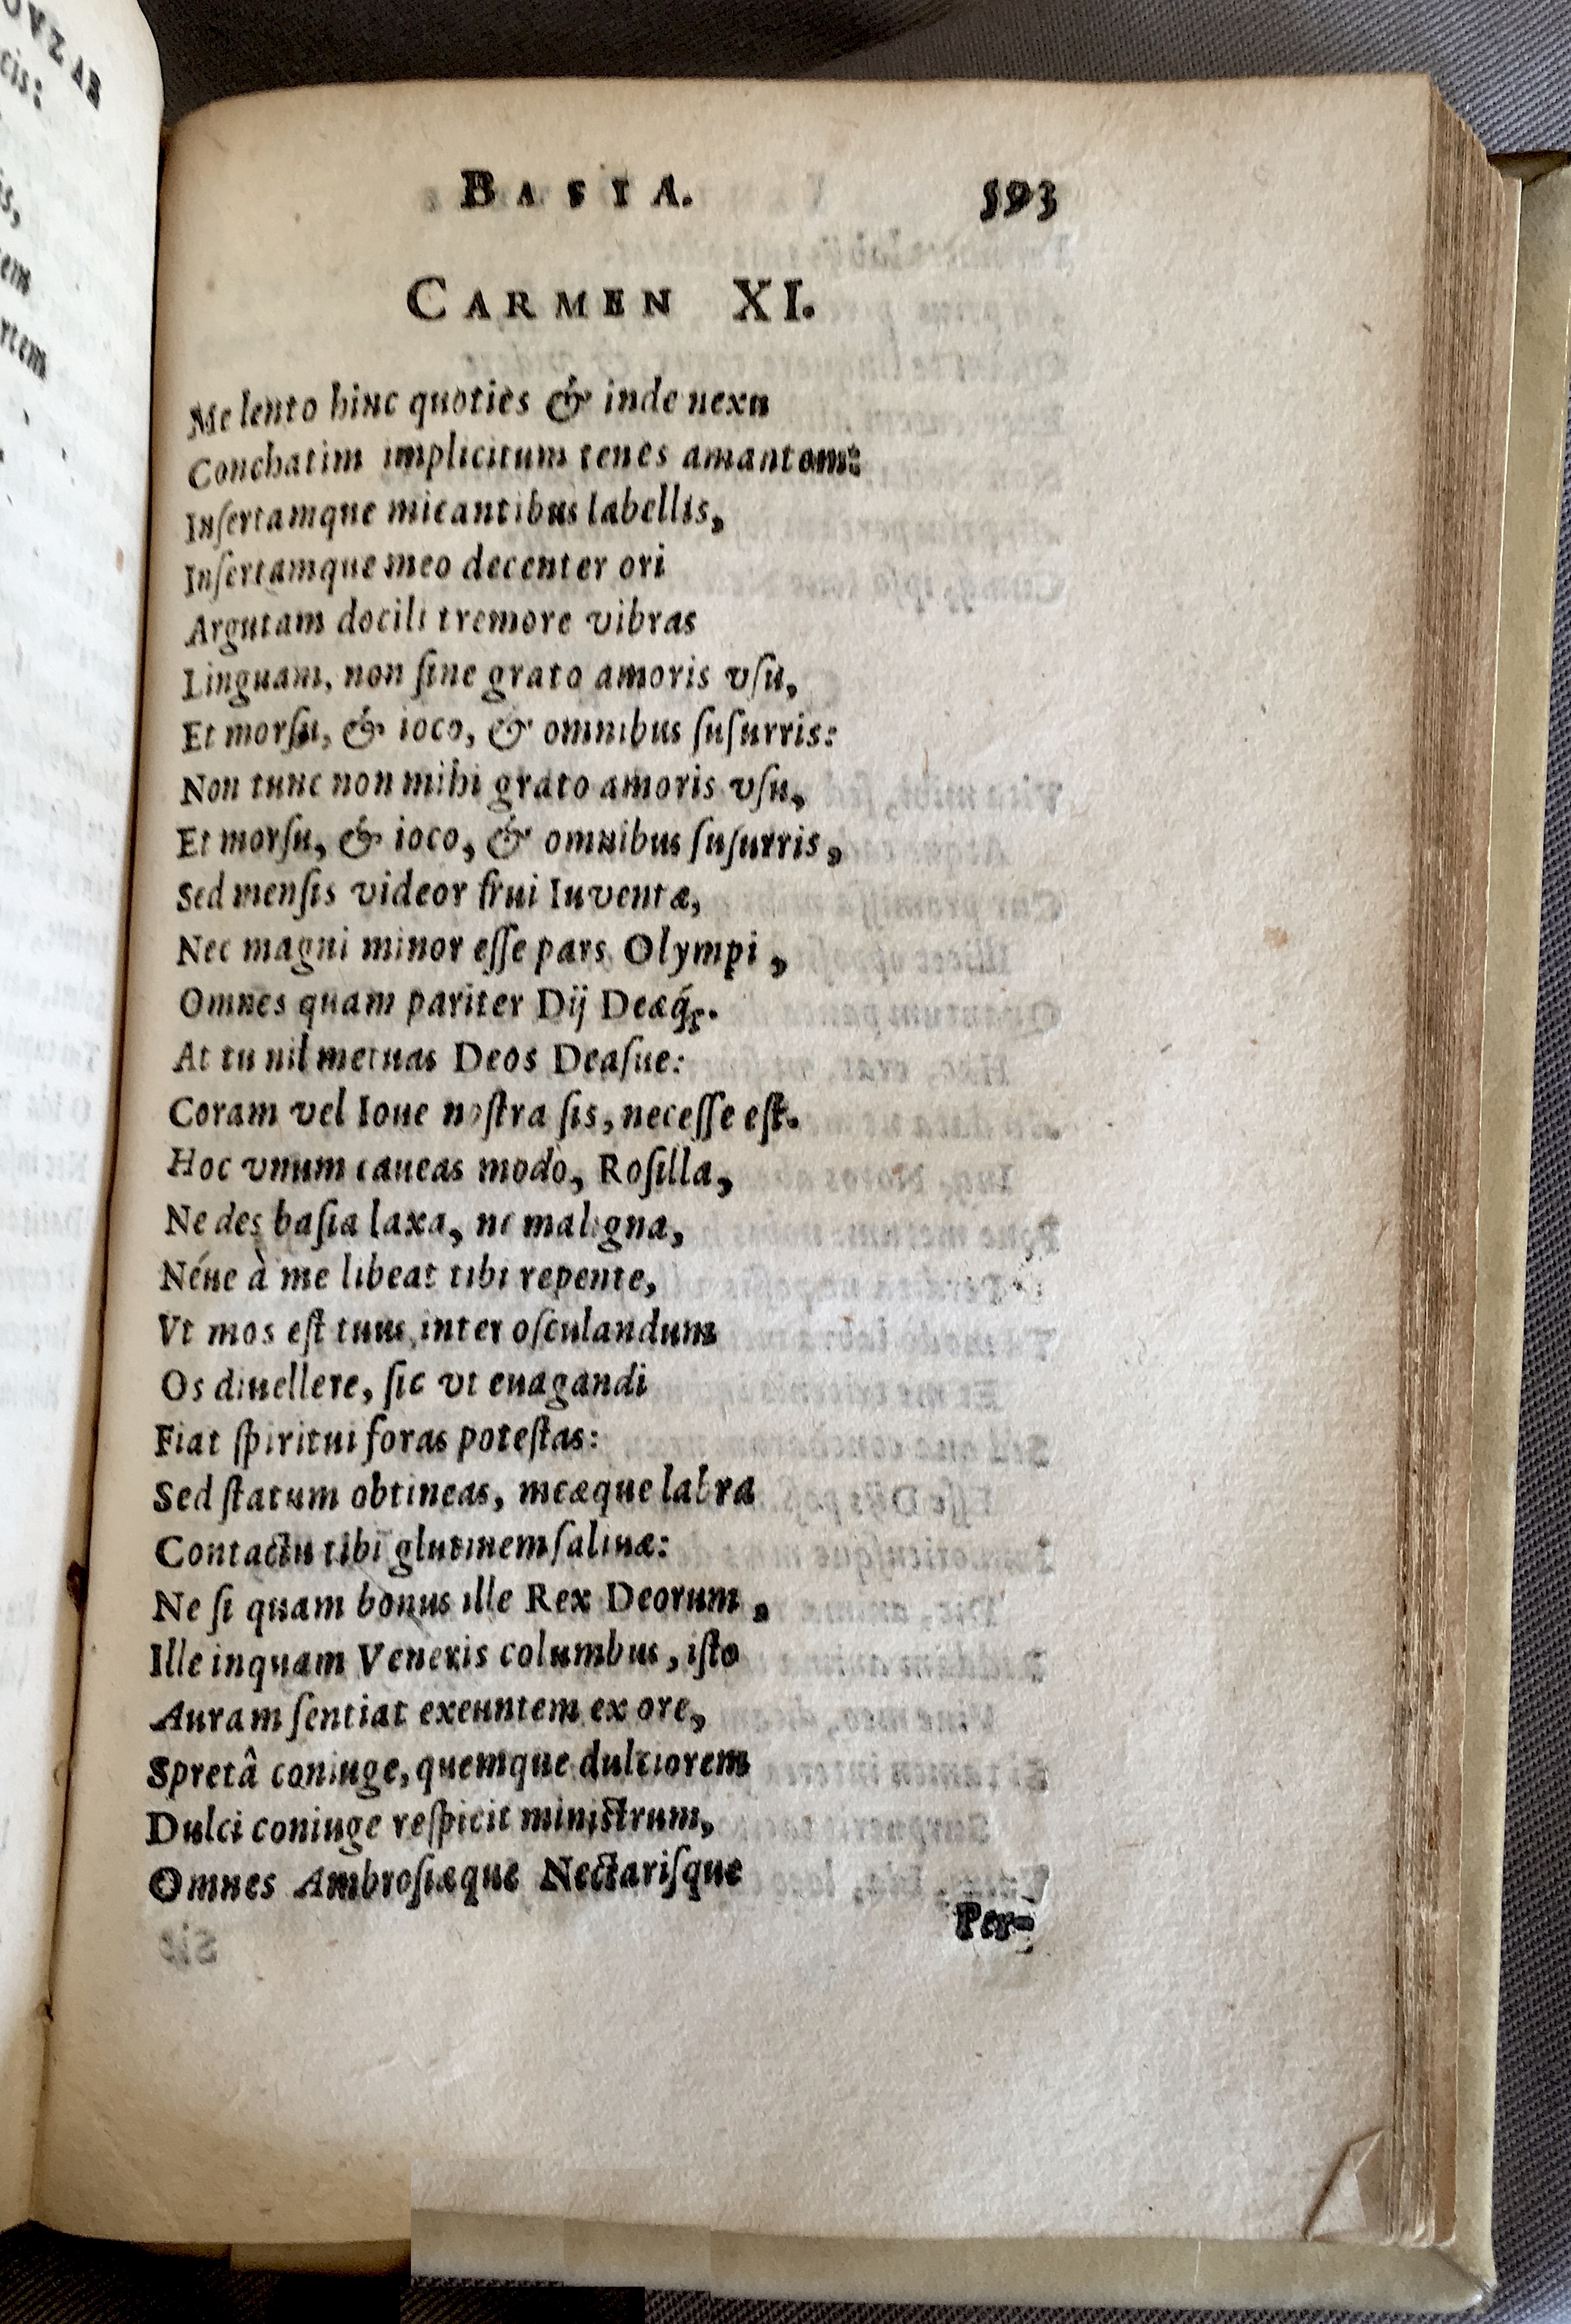 BASIA. 593
CARMEN XI.
Me lento hinc quoties & inde nexu
Conchatim implicitum tenes amantem:
Inſertamque micantibus labellis,
Inſertamque meo decenter ori
Argutam docili tremore vibras
Linguam, non ſine grato amoris vſu,
Et morſu, & ioco, & omnibus ſuſurris:
Non tunc non mihi grato amoris vſu,
Et morſu, & ioco, & omnibus ſuſurris,
Sed menſis videor frui Iuventæ,
Nec magni minor eſſe pars Olympi,
Omnes quam pariter Dij Deæq́;.
At tu nil metuas Deos Deaſue:
Coram vel Ioue noſtra ſis, neceſſe eſt.
Hoc vnum caueas modò, Roſilla,
Ne des baſia laxa, ne maligna,
Néue à me libeat tibi repente,
Vt mos eſt tuus, inter oſculandum
Os diuellere, ſic vt euagandi
Fiat ſpiritui foras poteſtas:
Sed ſtatum obtineas, meæque labra
Contactu tibi glutinem ſaliuæ:
Ne ſi quam bonus ille Rex Deorum,
Ille inquam Veneris columbus, iſto
Auram ſentiat exeuntem ex ore,
Spretâ coniuge, quemque dulciorem
Dulci coniuge reſpicit miniſtrum,
Omnes Ambroſiæque Nectariſque
Per-
cis:
rtem